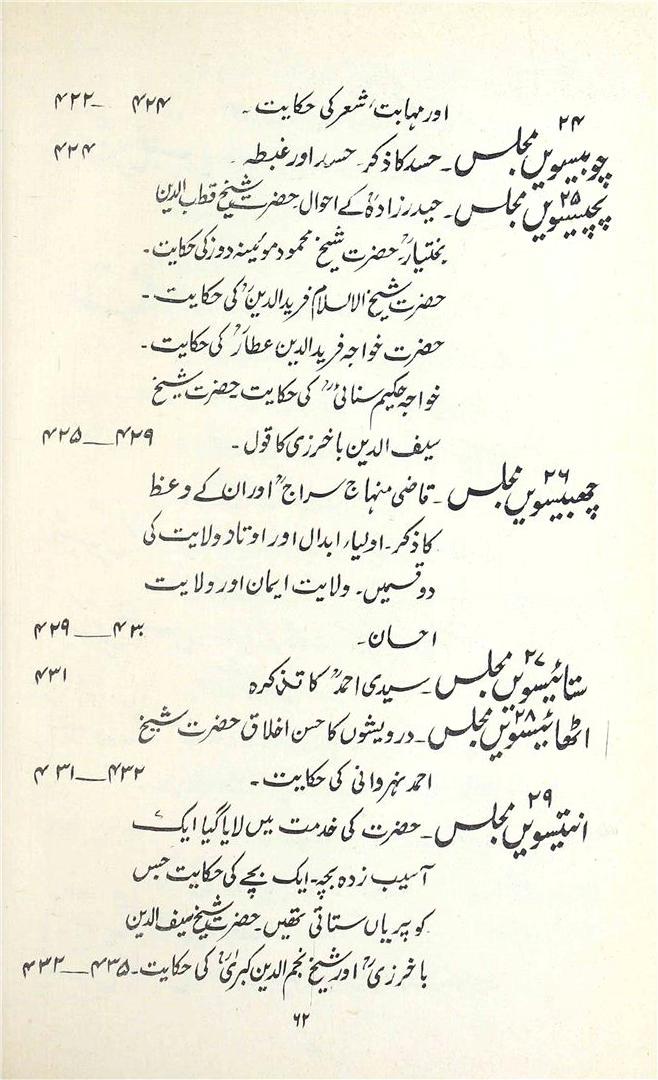 اور مہابت، شعر کی حکایت۔ ۴۲۴ ــ ۴۲۲
۲۴
چوبیسویں مجلس۔ حسد کا ذکر۔ حسد اور غبطہ۔ ۴۲۴
۲۵
پچیسویں مجلس۔ حیدر زادہؒ کے احوال۔ حضرت شیخ قطب الدین
بختیارؒ۔ حضرت شیخ محمود موئینہ دوز کی حکایت۔
حضرت شیخ الاسلام فرید الدینؒ کی حکایت۔
حضرت خواجہ فرید الدین عطارؒ کی حکایت۔
خواجہ حکیم سنائیؒ کی حکایت۔ حضرت شیخ
سیف الدین باخرزی کا قول۔ ۴۲۹ــ۴۲۵
۲۶
چھبیسویں مجلس۔ قاضی منہاج سراجؒ اور ان کے وعظ
کا ذکر۔ اولیاء ابدال اور اوتاد ولایت کی
دو قسمیں۔ ولایت ایمان اور ولایت
احسان۔ ۴۳۰ــ۴۲۹
۲۷
ستائیسویں مجلس۔ سیدی احمدؒ کا تذکرہ ۴۳۱
۲۸
اٹھائیسویں مجلس۔ درویشوں کا حسن اخلاق حضرت شیخ
احمد نہروانی کی حکایت۔ ۴۳۲ــ۴۳۱
۲۹
انتیسویں مجلس۔ حضرت کی خدمت میں لایا گیا ایک
آسیب زدہ بچہ۔ ایک بچے کی حکایت جس
کو پریاں ستاتی تھیں۔ حضرت شیخ سیف الدین
باخرزیؒ اور شیخ نجم الدین کبریٰؒ کی حکایت۔ ۴۳۵ــ۴۳۲
۶۲